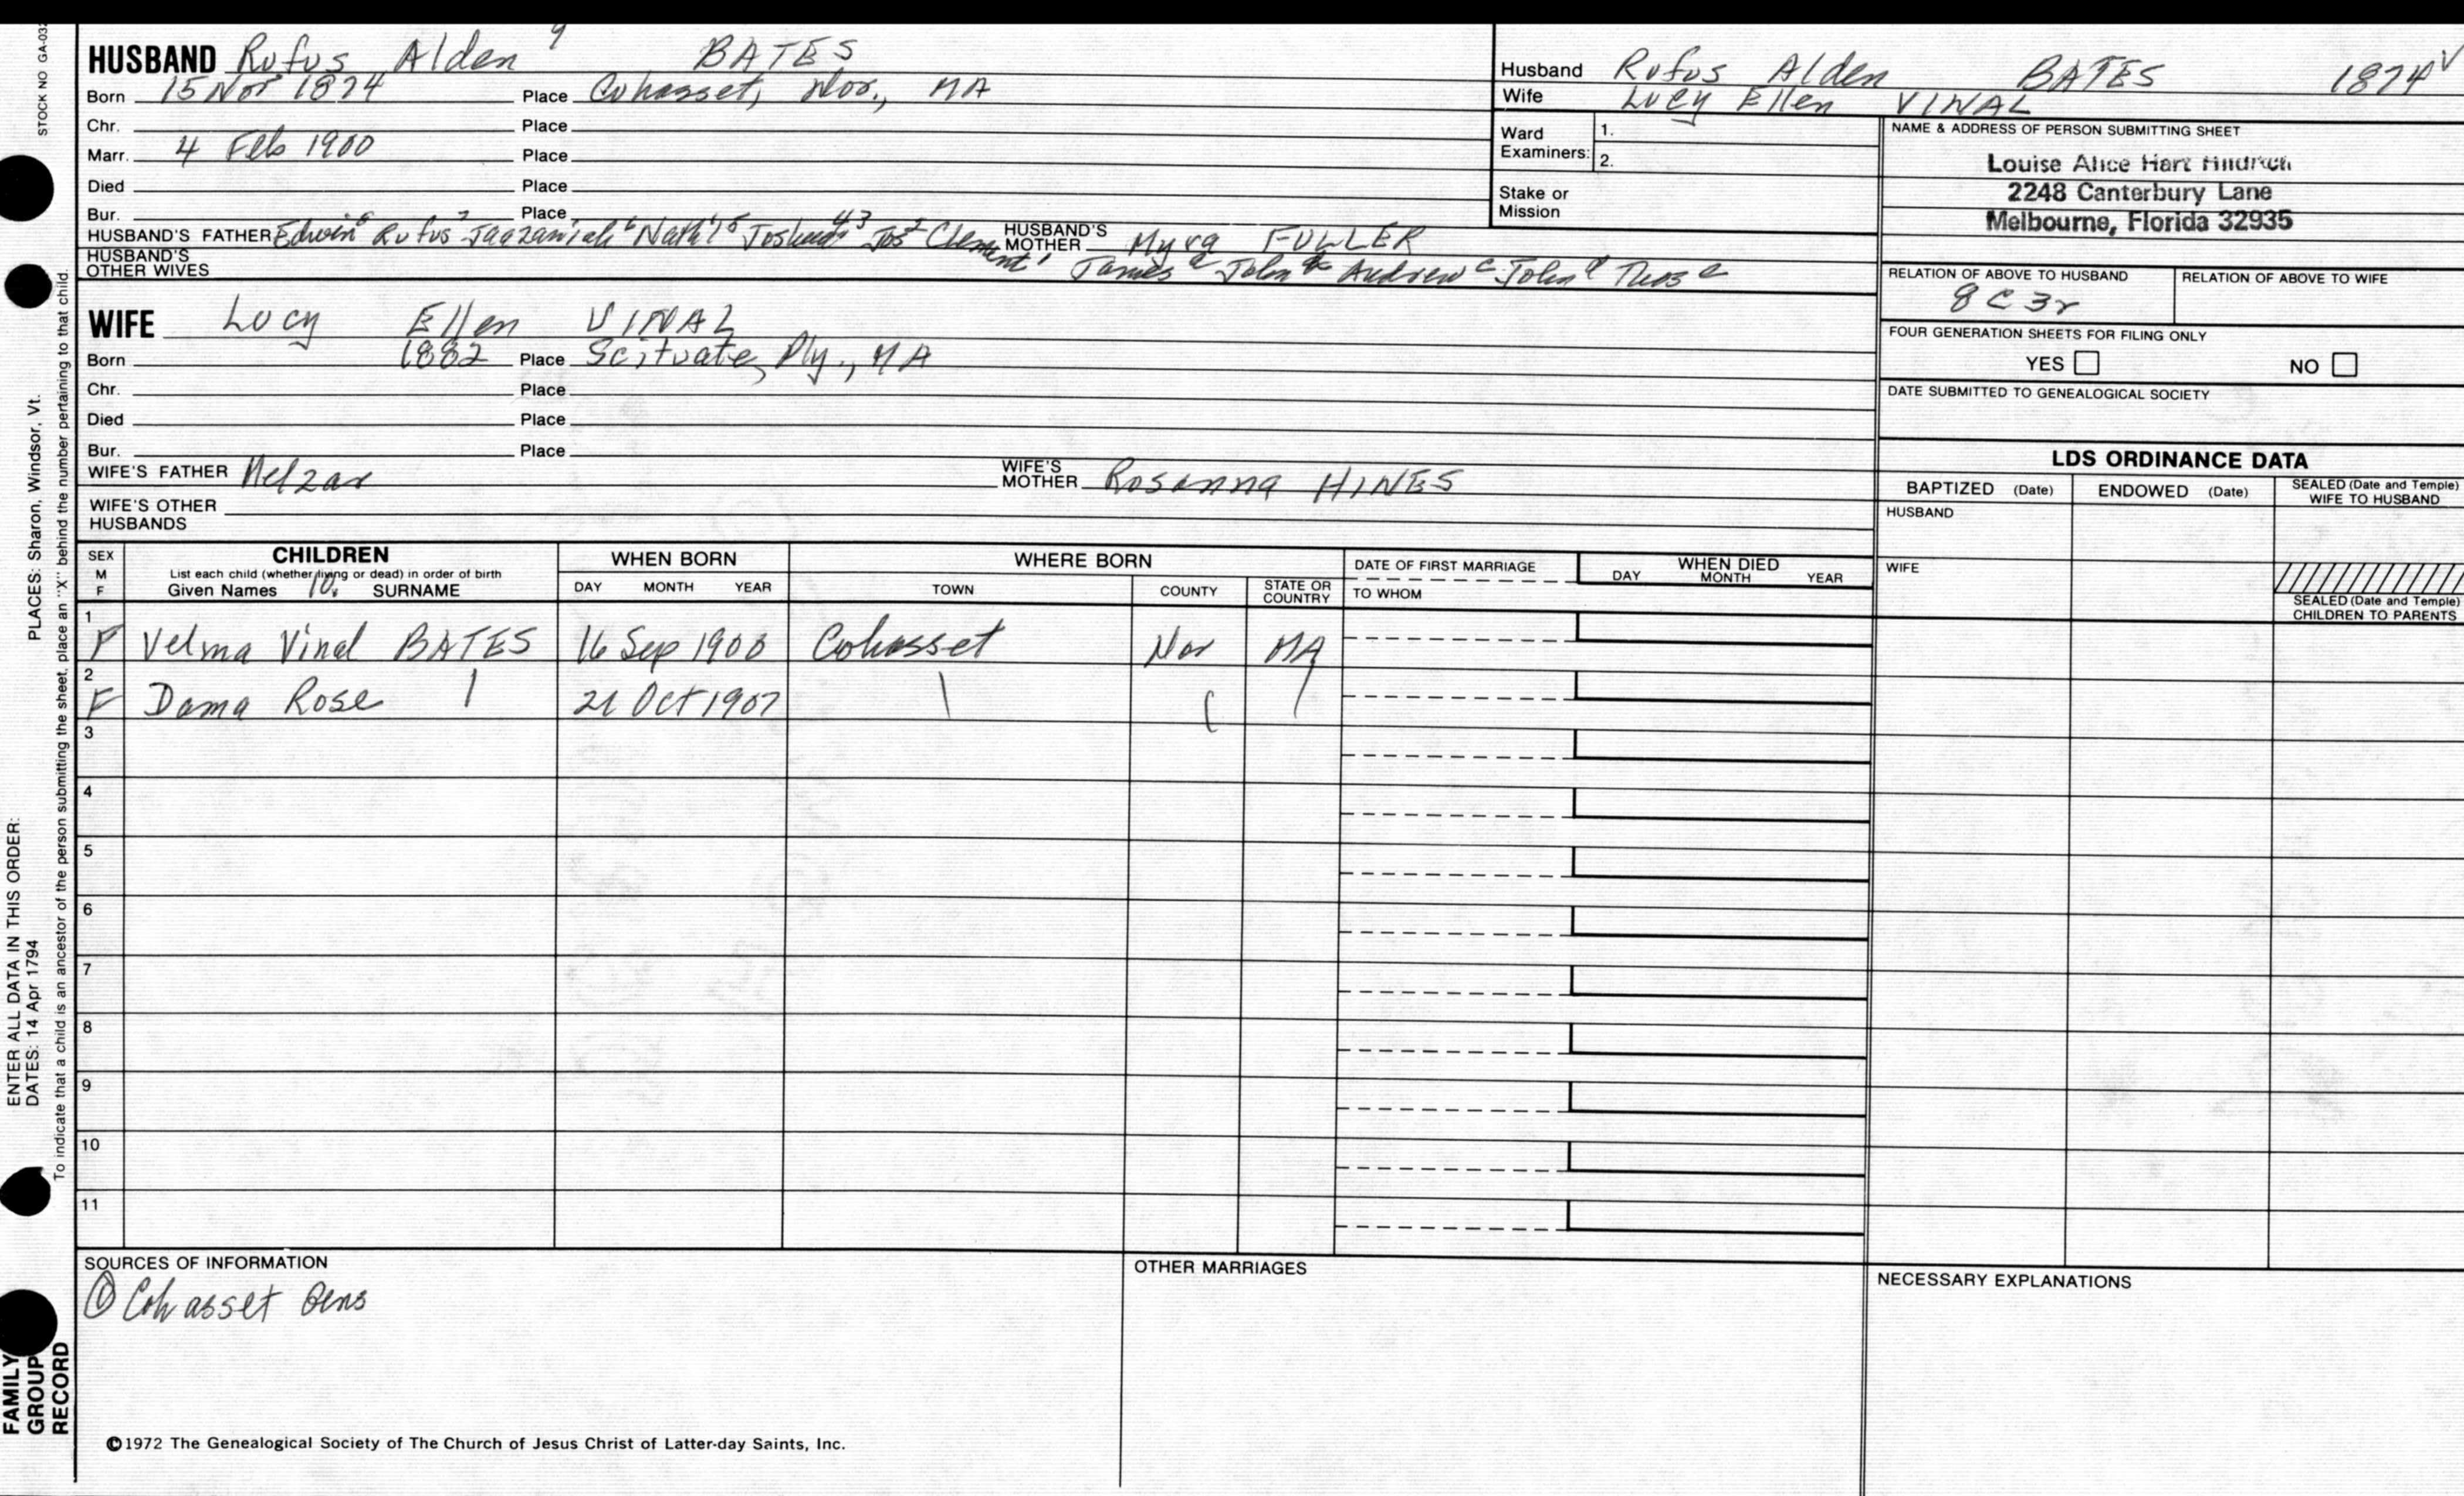 STOCK NO GA-03
HUSBAND Rufus Alden 9 BATES
Born 15 Nov 1874 Place Cohasset, Nor., MA
Chr. Place
Marr. 4 Feb 1900 Place
Died Place
Bur. Place
HUSBAND'S FATHER Edwin 8 Rufus 7 Jaazaniah 6 Nath'l 5 Joshua 4 3 Jos 2 Clement 1 HUSBAND'S MOTHER Myra FULLER
HUSBAND'S OTHER WIVES James a John b Andrew c John d Thos e
WIFE Lucy Ellen VINAL
Born 1882 Place Scituate, Ply., MA
Chr. Place
Died Place
Bur. Place
WIFE'S FATHER Melzar WIFE'S MOTHER Rosanna HINES
WIFE'S OTHER HUSBANDS
Husband Rufus Alden BATES 1874 V
Wife Lucy Ellen VINAL
Ward Examiners: 1.
2.
Stake or Mission
NAME & ADDRESS OF PERSON SUBMITTING SHEET
Louise Alice Hart
2248 Canterbury Lane
Melbourne, Florida 32935
RELATION OF ABOVE TO HUSBAND RELATION OF ABOVE TO WIFE
8C3r
FOUR GENERATION SHEETS FOR FILING ONLY
YES NO
DATE SUBMITTED TO GENEALOGICAL SOCIETY
LDS ORDINANCE DATA
BAPTIZED (Date) ENDOWED (Date) SEALED (Date and Temple) WIFE TO HUSBAND
HUSBAND
WIFE
SEALED (Date and Temple) CHILDREN TO PARENTS
SEX M F
CHILDREN
List each child (whether living or dead) in order of birth
Given Names 10. SURNAME
WHEN BORN
DAY MONTH YEAR
WHERE BORN
TOWN COUNTY STATE OR COUNTRY
DATE OF FIRST MARRIAGE
TO WHOM
WHEN DIED
DAY MONTH YEAR
1 F Velma Vinal BATES 16 Sep 1900 Cohasset Nor MA
2 F Dama Rose 21 Oct 1907
3
4
5
6
7
8
9
10
11
SOURCES OF INFORMATION
① Cohasset Gens
OTHER MARRIAGES
NECESSARY EXPLANATIONS
©1972 The Genealogical Society of The Church of Jesus Christ of Latter-day Saints, Inc.
FAMILY GROUP RECORD
ENTER ALL DATA IN THIS ORDER:
DATES: 14 Apr 1794
PLACES: Sharon, Windsor, Vt.
To indicate that a child is an ancestor of the person submitting the sheet, place an "X" behind the number pertaining to that child.